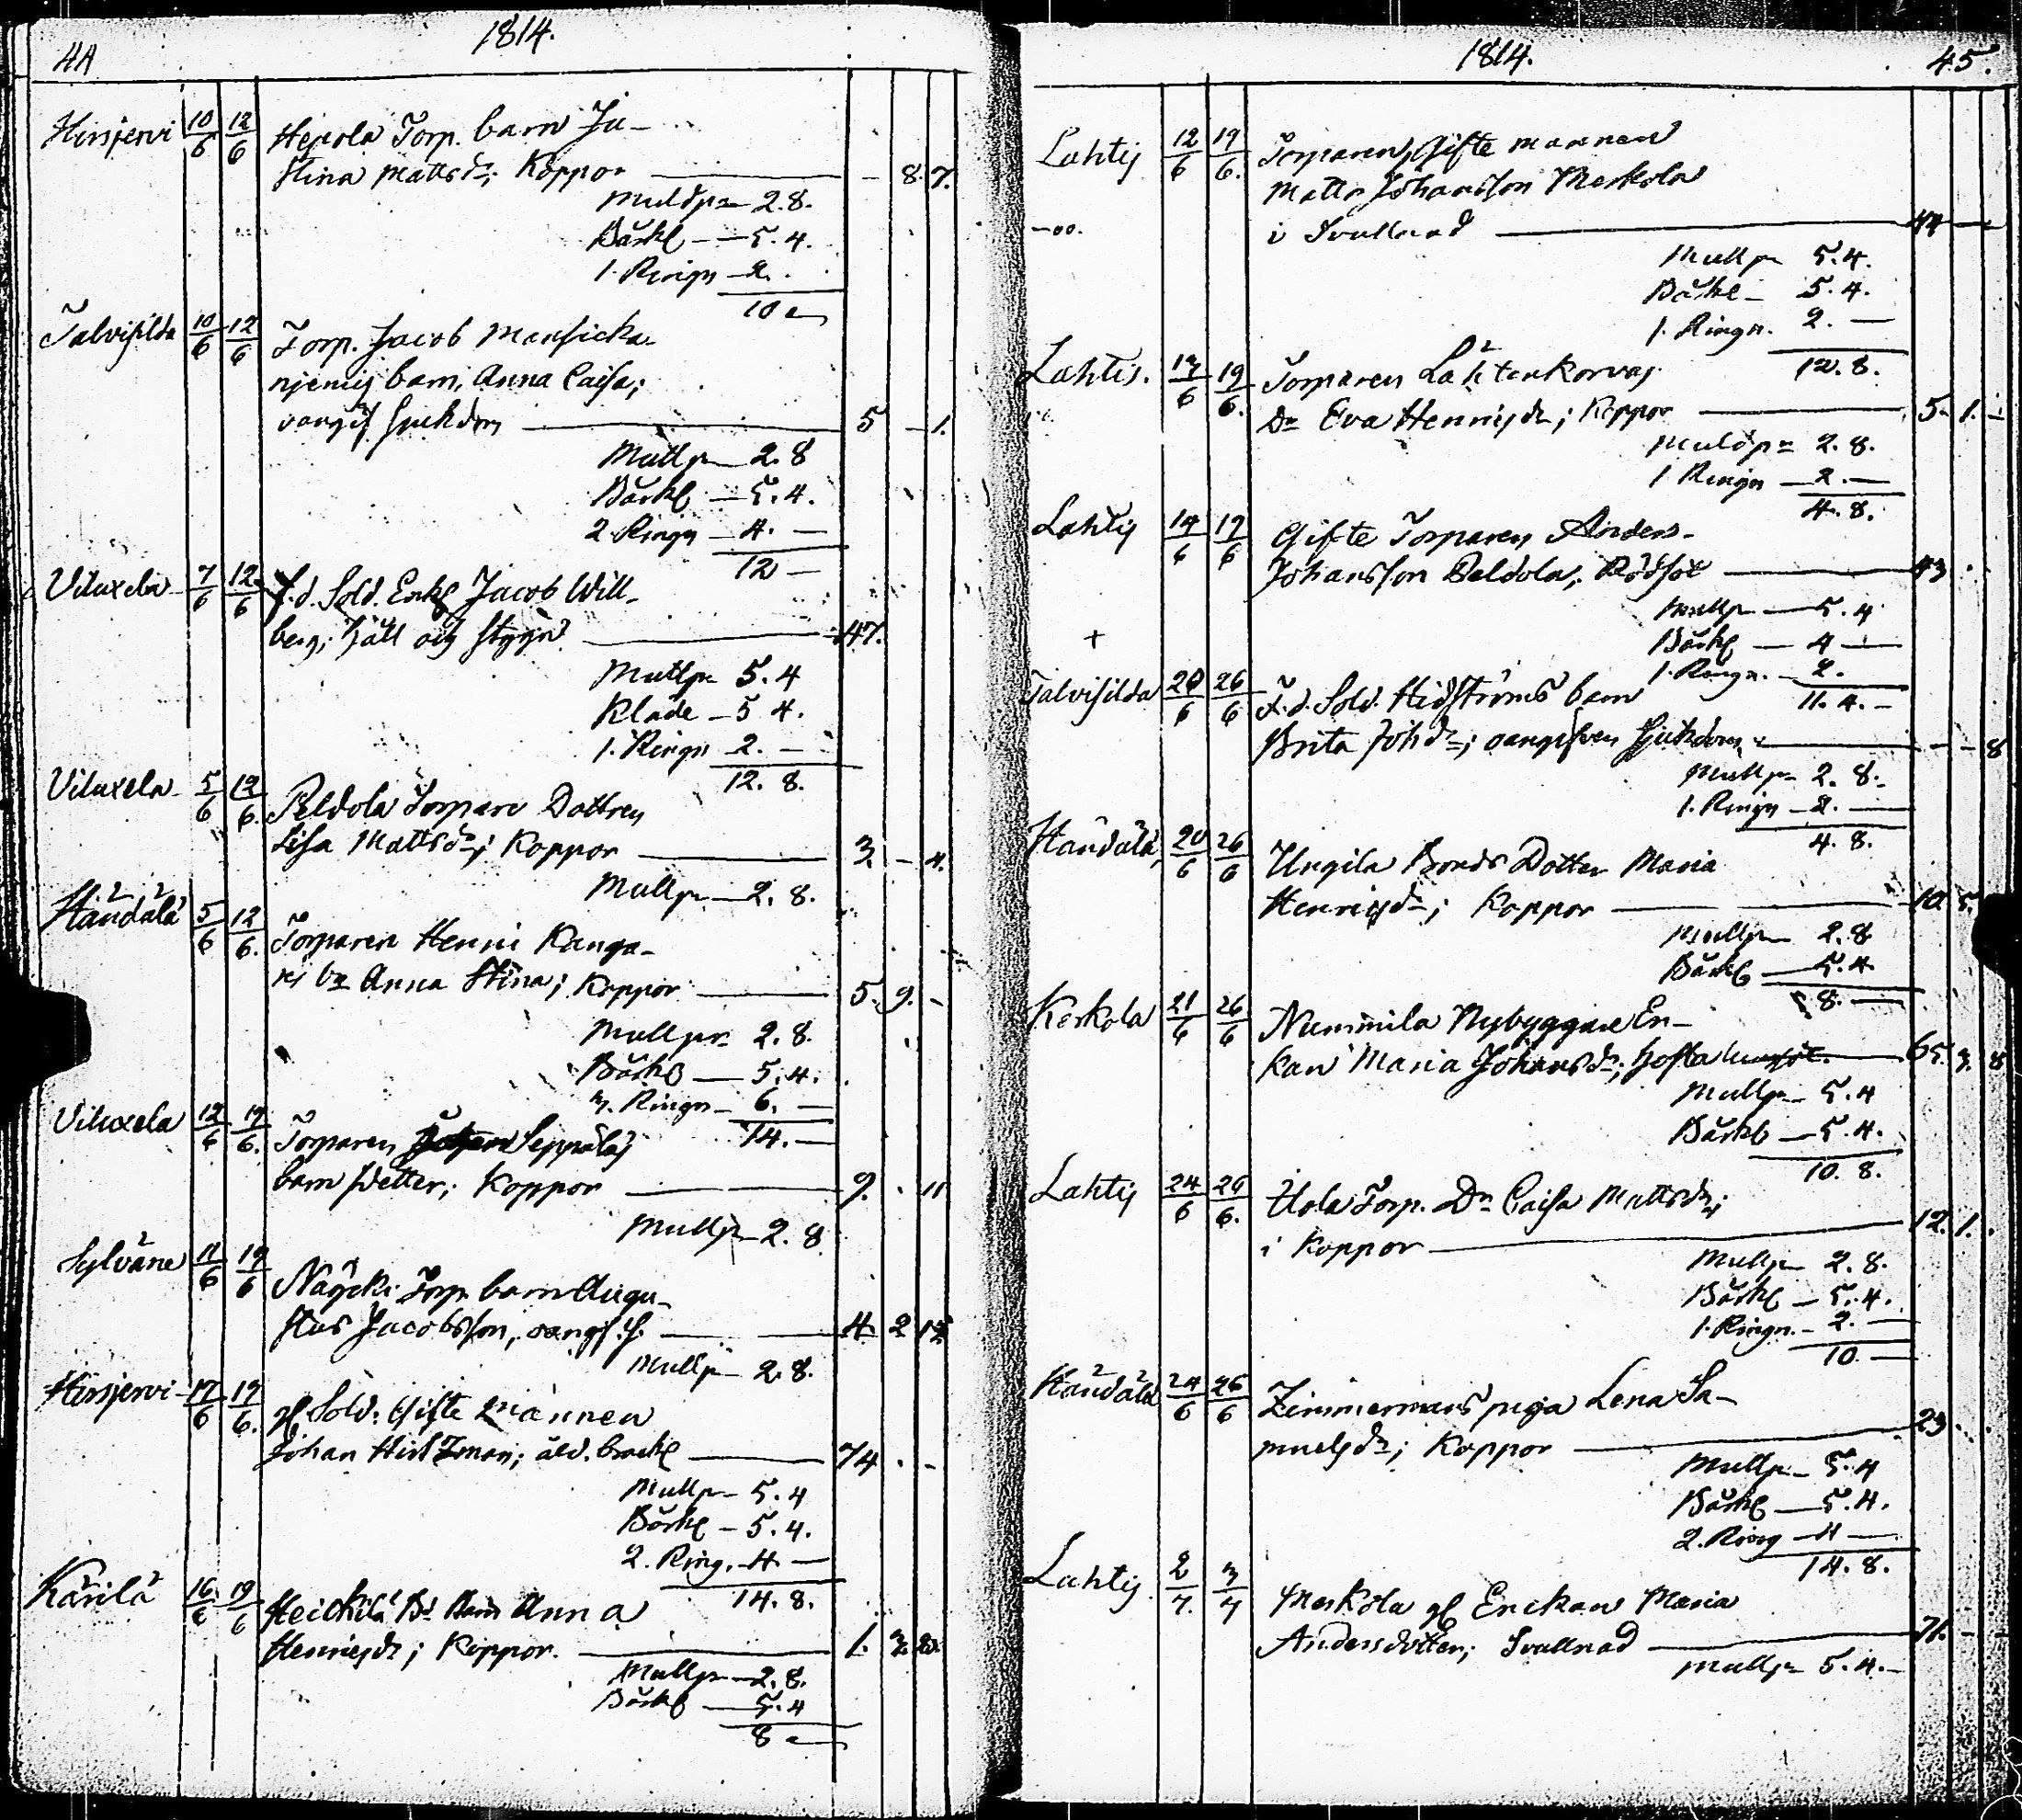 44
1814.
Hirsjervi 10/6 12/6 Hepola Torp. barn Ju-
stina Mattsdr; Koppor — 8. 7.
Mullpr 2.8.
Bårkl — 5.4.
1. Ringn — 2.
10 —
Talvisilda 10/6 12/6 Torp. Jacob Mansicka-
njemis barn, Anna Caisa;
oangif. sjukdom 5 — 1.
Mullpr — 2.8
Bårkl — 5.4.
2 Ringn — 4. —
12 —
Viluxela 7/6 12/6 f.d. Sold. Enkl. Jacob Will-
berg; håll och styng 47.
Mullpr 5.4
Kläde — 5 4.
1. Ringn 2. —
12. 8.
Viluxela 5/6 12/6. Peldola Torpare Dottren
Lisa Mattsdr; Koppor 3. — 4.
Mullpr — 2.8.
Händälä 5/6 12/6. Torparen Henric Kanga-
Anna Stina; Koppor 5. 9. —
Mullpr 2.8.
Bårkl — 5.4.
3. Ringn — 6. —
14. —
Viluxela 12/6 19/6. Torparen Seppäläs
barn Petter; Koppor 9. . 11
Mullpr — 2.8.
Sylväne 11/6 19/6 Näycki Torp. barn Augu-
stus Jacobsson, oangif. s. 4. 2 12
Mullpr — 2.8.
Hirsjervi 17/6 19/6. gl. Sold. Gifte mannen
Johan Hirstman; åld. bräckl 74 . —
Mullpr — 5.4
Bårkl — 5.4.
2. Ring. — 4 —
14. 8.
Kärilä 16/6 19/6 Heickilä Bd. Barn Anna
Henricsdr; Koppor. 1. 3.
Mullpr — 2.8.
Bårkl — 5.4
8 —
1814.
45.
Lahtis 12/6 19/6. Torparen, Gifte mannen
Matts Johansson Meskola
i Svullnad 44 — —
Mullpr 5.4.
Bårkl — 5.4.
1. Ringn. 2. —
12. 8.
Lahtis. 13/6 19/6. Torparen Lähtenkorvas
Dr Eva Henricsdr; Koppor 5. 1. —
Mullpr 2.8.
1 Ringn — 2. —
4. 8.
Lahtis 14/6 19/6 Gifte Torparen Anders
Johansson Peldola; Rödsot 43 .
Mullpr — 5.4
Bårkl — 4 —
1. Ringn. — 2.
11. 4. —
+
Talvisilda 20/6 26/6 F.d. Sold. Hidströms barn
Brita Johdr; oangifven Sjukdom — — 8
Mullpr 2.8.
1. Ringn — 2. —
4. 8.
Händälä 20/6 26/6 Ungila Bonds Dotter Maria
Henricsdr; Koppor 10 5.
Mullpr 2.8
Bårkl — 5.4
8. —
Keskola 21/6 26/6 Nummila Nybyggare En-
kan Maria Johansdr; 65. 3. 8
Mullpr — 5.4
Bårkl — 5.4.
10. 8.
Lahtis 24/6 26/6. Uola Torp. Dr Caisa Mattsdr;
i Koppor 12. 1.
Mullpr 2.8.
Bårkl — 5.4.
1. Ringn. — 2. —
10 —
Händälä 24/6 26/6 Zimmermans piga Lena Sa-
muelsdr; Koppor 23 .
Mullpr — 5.4
Bårkl — 5.4.
2. Ring — 4 —
14. 8.
Lahtis 2/7. 3/7 Meskola gl Enckan Maria
Andersdotter; Svullnad 71. — —
Mullpr 5.4. —